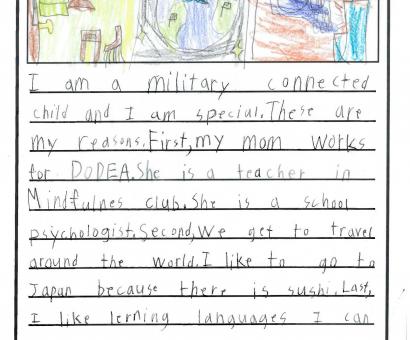 I am a military connected
child and I am special.These are
my reasons.First,my mom works
for DODEA.She is a teacher in
Mindfulnes club.She is a school
psychologist.Second,We get to travel
around the world.I like to go to
Japan because there is sushi.Last,
I like lerning languages I can